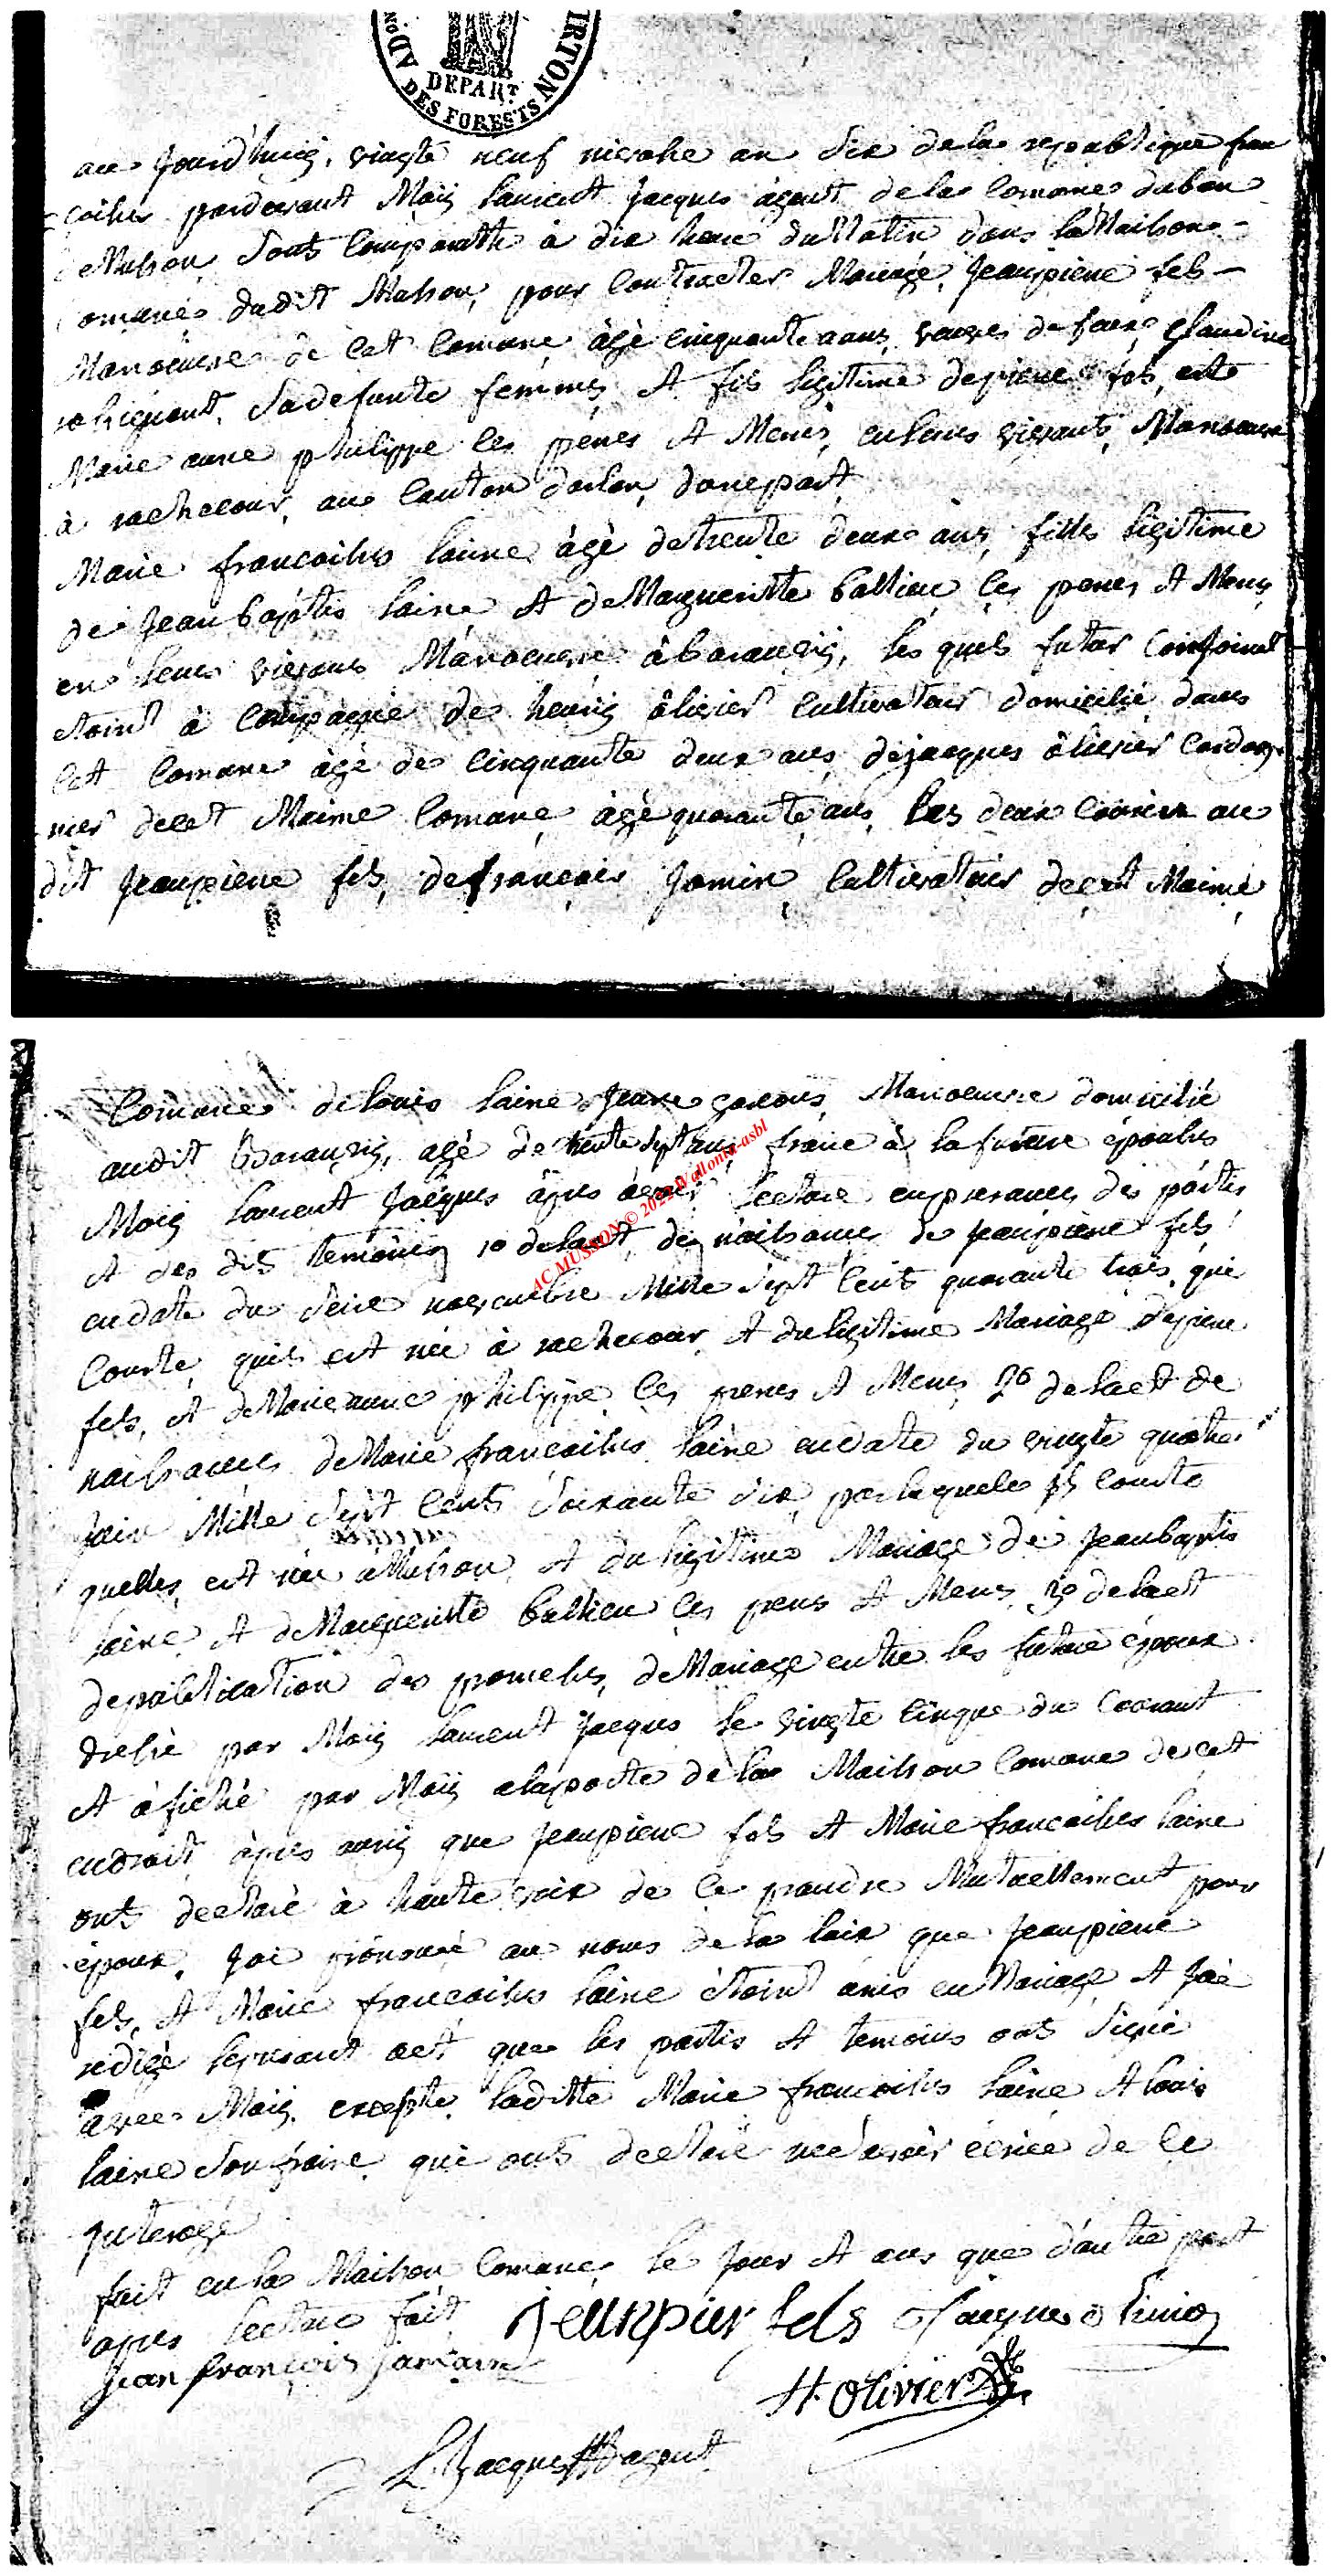 ADon
IRTON
DEPART.
DES FORESTS
au Jourd'huij, vingte neuf nivohe an Six de la republique fran
coihes pardevant Moij laurent Jacques ágent de la Comone du ban
de Muhson Sont Comparutte à dix heure du Matin dans la Maihone
Comune dudit Muhson, pour Contracter Mariage, Jeanpiere fels
Manoeuvre de Cet Comune âgé cinquante aans, veuves de feue Claudine
, Sa defunte femmes, et fils ligitime de piere fels, et de
Marie anne philippe les peres et Meres, en leurs vievants, Manoeuvre
à rachecour, au Canton darlon, d'une part,
Marie francoihes laine âgé de trente deux ans, fille ligitime
de Jean baptis laine et de Margueritte ballieu les peres et Meres
en leurs vievans Manoeuvre à baranzij, les quels futur Conjoint
étoint à Compagnie de henrij ôlivier Cultivateur domicilié dans
Cet Comune âgé de Cinquante deux ans, de jacques ôlivier Cordon
nier de cet Maime Comune, âgé quarante ans, les deux Couzin au
dit Jeanpiere fels, de françois Jamin, Cultivateur de cet Maime
Comune, de louis laine Jeune garcons, Manoeuvre domicilié
audit Baranzij, agé de trente Sept ans, fraire à la future épouhes
Moij laurent Jacques âpres avoir lecture en presances des partis
et des dis temoins 1o de lact de naihances de Jeanpiere fels
en date du Seize novembre Mille Sept Cents quarante trois, qui
Conste, quil est née à rachecour, et du ligitime Mariage de piere
fels, et de Marie anne philippe les peres et Meres, 2o de lact de
naihances de Marie francoihes laine en date du vingte quatre
Juin Mille Sept Cents Soixante Six par laquele il Conste
quelles est née à Muhson, et du ligitime Mariage de Jean baptis
laine, et de Margueritte ballieu les peres et Meres, 3o de lact
de publication des promehes, de Mariage entre les future époux
drehé par Moij laurent Jacques le vingte Cinque du Courant
et àfiché par Moij a la porte de la Maihson Comune de cet
endroit âpres avoij que Jeanpiere fels et Marie francoihes laine
onts declaré à haute voix de Ce prandre Mutuellement pour
époux, Jai prononcé au noms de la loix que Jeanpiere
fels, et Marie francoihes laine étoint unis en Mariage et Jai
redigé le presant act que les partis et temoins onts Signé
avec Moij excepte, laditte Marie francoihes laine et louis
laine Son fraire qui onts declaré ne Savoir écrire de Ce
Juterogé
fait en la Maihson Comune, le Jour et ans que d'autre part
apres lecture fait
Jeanpier fels Jacques olivier
Jean françois Jamain
H. Olivier
L. Jacques agent
AC MUSSON © 2022 Wallonia-asbl